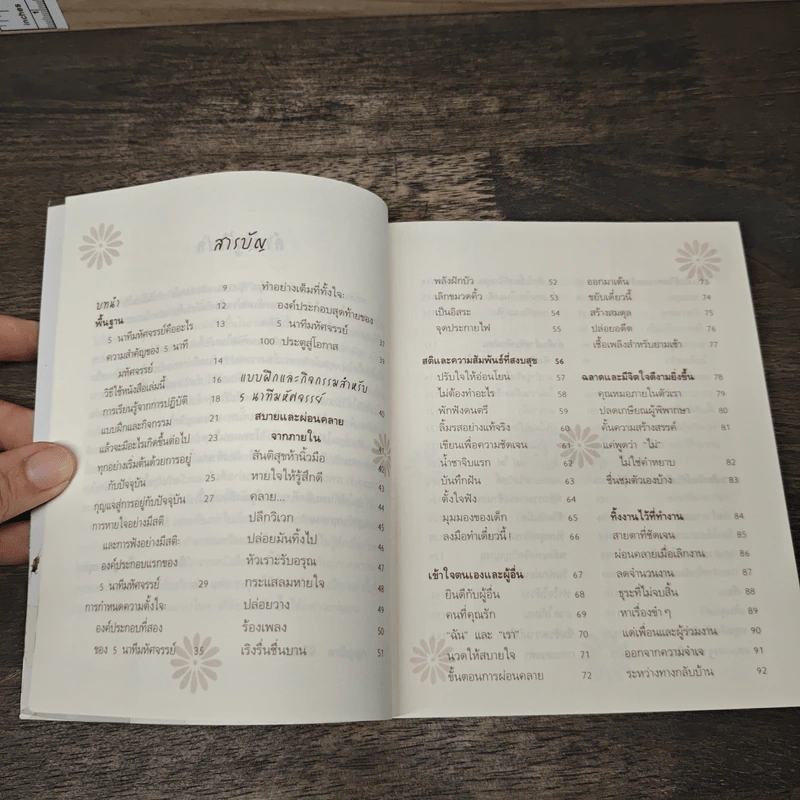 inches
สารบัญ
บทนำ 9
พื้นฐาน 12
5 นาทีมหัศจรรย์คืออะไร 13
ความสำคัญของ 5 นาที
มหัศจรรย์ 14
วิธีใช้หนังสือเล่มนี้ 16
การเรียนรู้จากการปฏิบัติ 18
แบบฝึกและกิจกรรม 21
แล้วจะมีอะไรเกิดขึ้นต่อไป 23
ทุกอย่างเริ่มต้นด้วยการอยู่
กับปัจจุบัน 25
กุญแจสู่การอยู่กับปัจจุบัน 27
การหายใจอย่างมีสติ
และการฟังอย่างมีสติ:
องค์ประกอบแรกของ
5 นาทีมหัศจรรย์ 29
การกำหนดความตั้งใจ:
องค์ประกอบที่สอง
ของ 5 นาทีมหัศจรรย์ 35
ทำอย่างเต็มที่ทั้งใจ:
องค์ประกอบสุดท้ายของ
5 นาทีมหัศจรรย์ 37
100 ประตูสู่โอกาส 39
แบบฝึกและกิจกรรมสำหรับ
5 นาทีมหัศจรรย์ 40
สบายและผ่อนคลาย
จากภายใน
สันติสุขห้านิ้วมือ
หายใจให้รู้สึกดี
คลาย...
ปลีกวิเวก
ปล่อยมันทิ้งไป
หัวเราะรับอรุณ
กระแสลมหายใจ
ปล่อยวาง 49
ร้องเพลง 50
เริงรื่นชื่นบาน 51
พลังฝักบัว 52
เลิกขมวดคิ้ว 53
เป็นอิสระ 54
จุดประกายไฟ 55
สติและความสัมพันธ์ที่สงบสุข 56
ปรับใจให้อ่อนโยน 57
ไม่ต้องทำอะไร 58
พักฟังดนตรี 59
ลิ้มรสอย่างแท้จริง 60
เขียนเพื่อความชัดเจน 61
น้ำชาจิบแรก 62
บันทึกฝัน 63
ตั้งใจฟัง 64
มุมมองของเด็ก 65
ลงมือทำเดี๋ยวนี้! 66
เข้าใจตนเองและผู้อื่น 67
ยินดีกับผู้อื่น 68
คนที่คุณรัก 69
"ฉัน" และ "เรา" 70
นวดให้สบายใจ 71
ขั้นตอนการผ่อนคลาย 72
ออกมาเต้น 73
ขยับเดี๋ยวนี้ 74
สร้างสมดุล 75
ปล่อยอดีต 76
เชื้อเพลิงสำหรับยามเช้า 77
ฉลาดและมีจิตใจดีงามยิ่งขึ้น 78
คุณหมอภายในตัวเรา 79
ปลดเกษียณผู้พิพากษา 80
ค้นความสร้างสรรค์ 81
แค่พูดว่า "ไม่"
ไม่ใช่คำหยาบ 82
ชื่นชมตัวเองบ้าง 83
ทิ้งงานไว้ที่ทำงาน 84
สายตาที่ชัดเจน 85
ผ่อนคลายเมื่อเลิกงาน 86
ลดจำนวนงาน 87
ธุระที่ไม่จบสิ้น 88
หาเรื่องขำๆ 89
แด่เพื่อนและผู้ร่วมงาน 90
ออกจากความจำเจ 91
ระหว่างทางกลับบ้าน 92